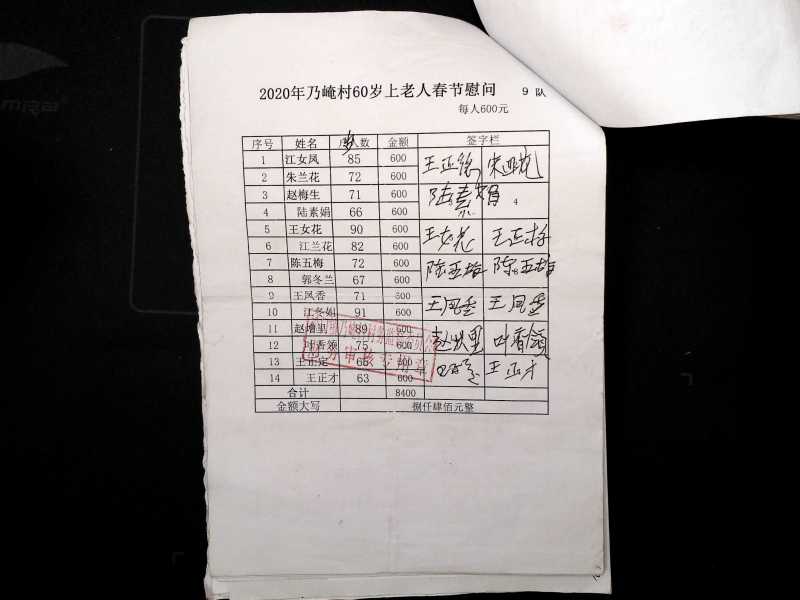 2020年乃崦村60岁上老人春节慰问 9 队
每人600元
序号 姓名 岁数 金额 签字栏
1 江女凤 85 600 王正
2 朱兰花 72 600
3 赵梅生 71 600 陆素娟
4 陆素娟 66 600 4
5 王女花 90 600 王女花 王正
6 江兰花 82 600
7 陈五梅 72 600 陈五梅 陈五梅
8 郭冬兰 67 600
9 王凤香 71 600 王凤香 王凤香
10 江冬娟 91 600
11 赵增里 89 600 叶香领
12 叶香领 75 600
13 王正定 65 600 王正才
14 王正才 63 600
合计 8400
金额大写 捌仟肆佰元整
财务审核专用章